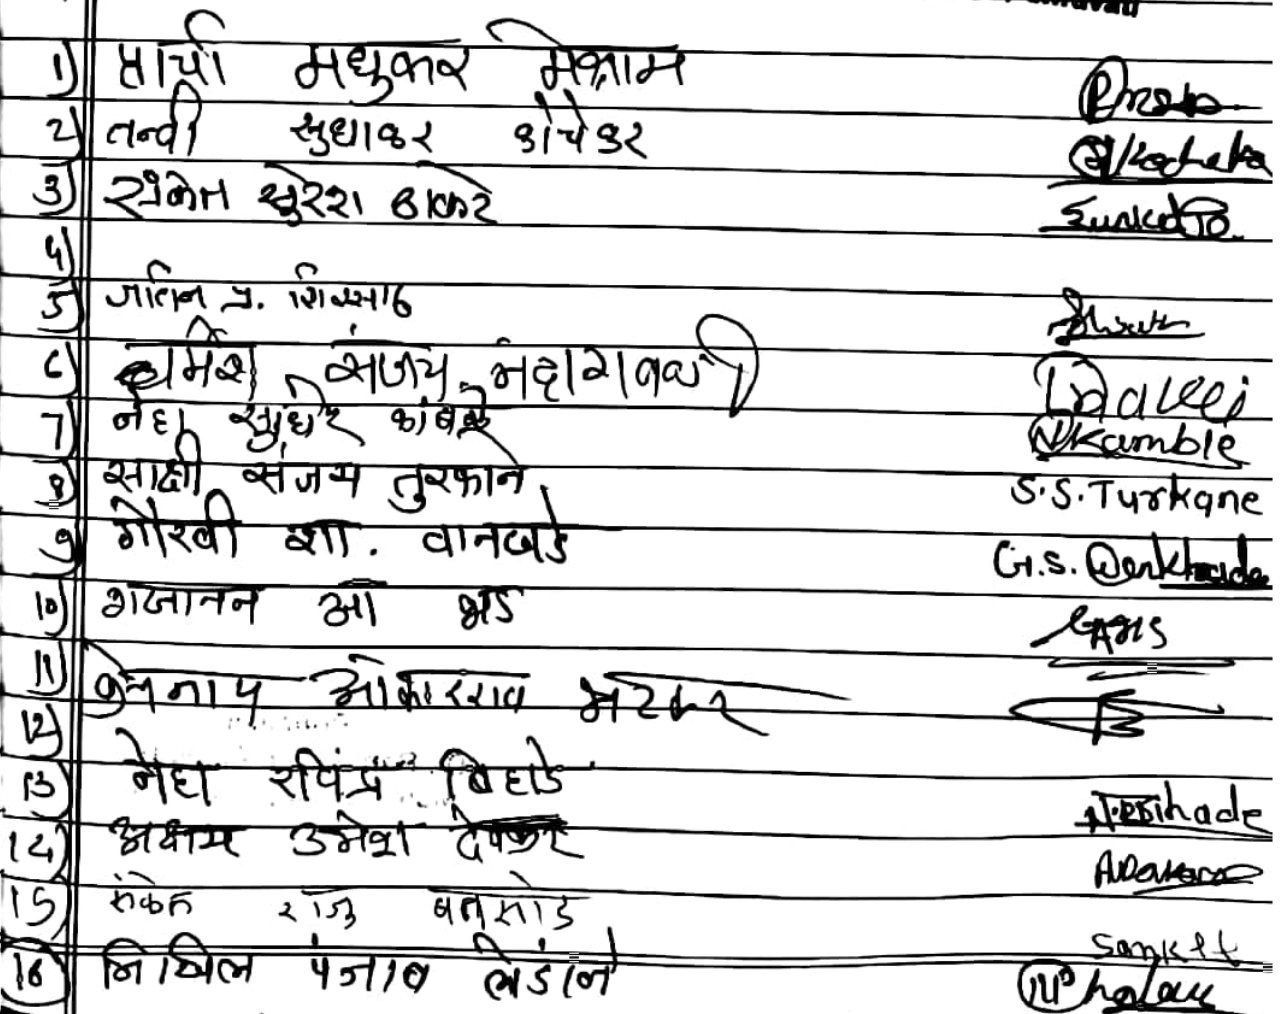 1) प्राची मधुकर मेश्राम
2) तन्वी सुधाकर कोचेकर Kocheka
3) संकेत सुरेश ठाकरे
4)
5) जतिन प्र. शिरसाठ
6) संजय
7) नेहा सुधीर कांबळे NKamble
8) साक्षी संजय तुरकाने S.S.Turkane
9) गौरवी शा. वानखडे G.S. Wankhade
10) गजानन ओ भड
11) ओंकारराव भटकर
12)
13) नेहा रविंद्र बिहाडे N.R.Bihade
14) अक्षय उमेश देवकर
15) संकेत राजु बनसोड Sanket
16) निखिल पंजाब